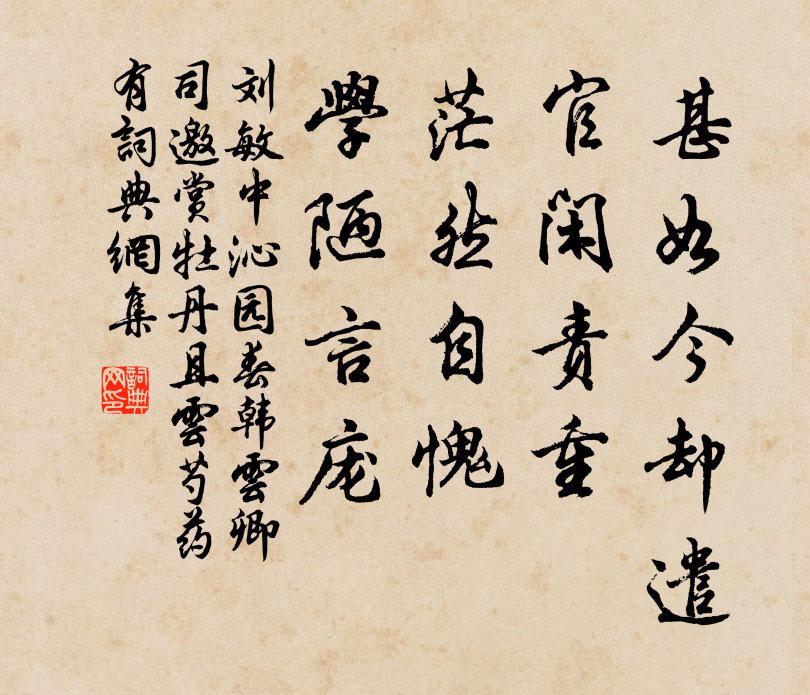 甚如今却遣
官闲责重
茫然自愧
學陋言庞
刘敏中沁园春韩雲卿
司邀赏牡丹且雲芍药
有詞典網集
詞典網印